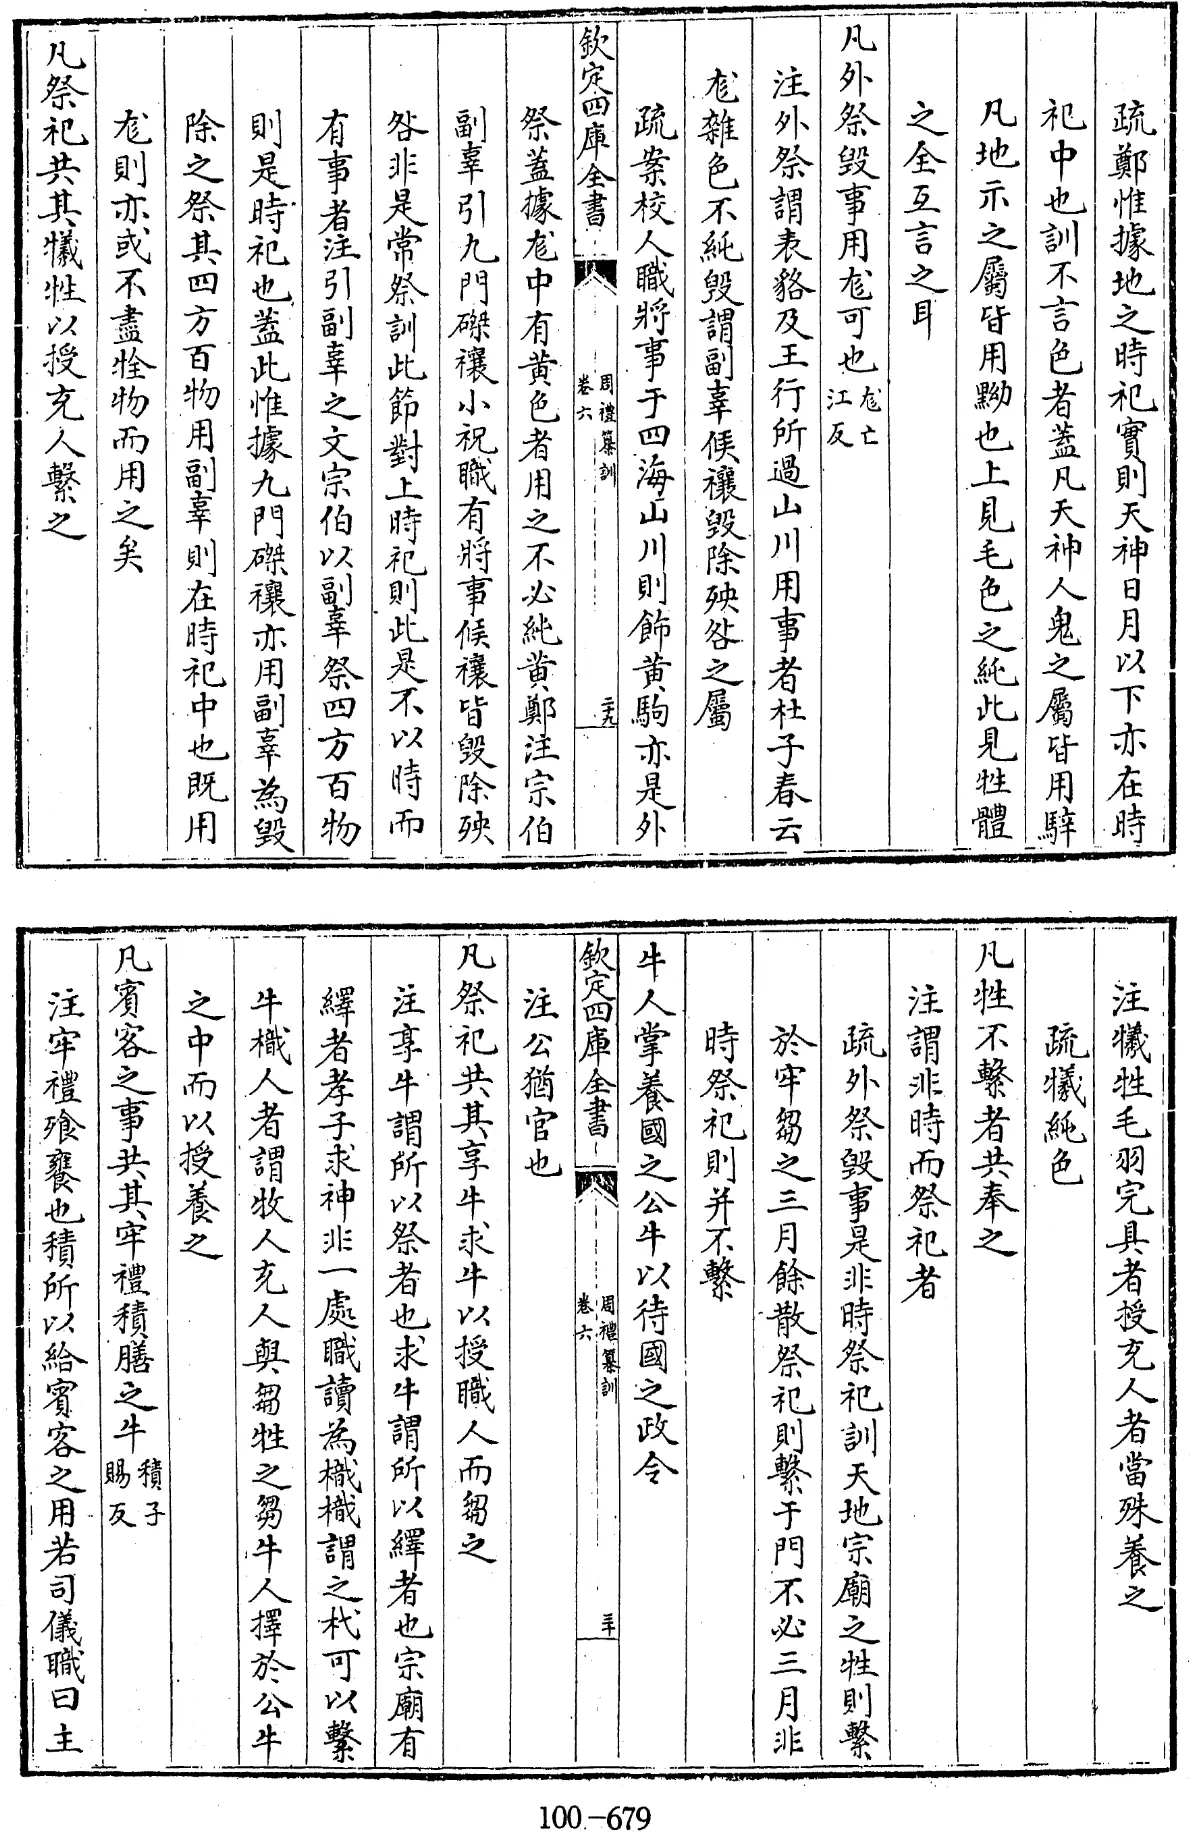 疏鄭惟據地之時祀實則天神日月以下亦在時
祀中也訓不言色者蓋凡天神人鬼之屬皆用騂
凡地示之屬皆用黝也上見毛色之純此見牲體
之全互言之耳
凡外祭毀事用尨可也尨亡
江反
注外祭謂表貉及王行所過山川用事者杜子春云
尨雜色不純毀謂副辜候禳毀除殃咎之屬
疏案校人職將事于四海山川則飾黃駒亦是外
欽定四庫全書
周禮纂訓
卷六
二十九
祭蓋據尨中有黃色者用之不必純黃鄭注宗伯
副辜引九門磔禳小祝職有將事候禳皆毀除殃
咎非是常祭訓此節對上時祀則此是不以時而
有事者注引副辜之文宗伯以副辜祭四方百物
則是時祀也蓋此惟據九門磔禳亦用副辜為毀
除之祭其四方百物用副辜則在時祀中也既用
尨則亦或不盡牷物而用之矣
凡祭祀共其犧牲以授充人繫之
注犧牲毛羽完具者授充人者當殊養之
疏犧純色
凡牲不繫者共奉之
注謂非時而祭祀者
疏外祭毀事是非時祭祀訓天地宗廟之牲則繫
於牢芻之三月餘散祭祀則繫于門不必三月非
時祭祀則并不繫
牛人掌養國之公牛以待國之政令
欽定四庫全書
周禮纂訓
卷六
三十
注公猶官也
凡祭祀共其享牛求牛以授職人而芻之
注享牛謂所以祭者也求牛謂所以繹者也宗廟有
繹者孝子求神非一處職讀為樴樴謂之杙可以繫
牛樴人者謂牧人充人與芻牲之芻牛人擇於公牛
之中而以授養之
凡賓客之事共其牢禮積膳之牛積子
賜反
注牢禮飧饔也積所以給賓客之用若司儀職曰主
100-679